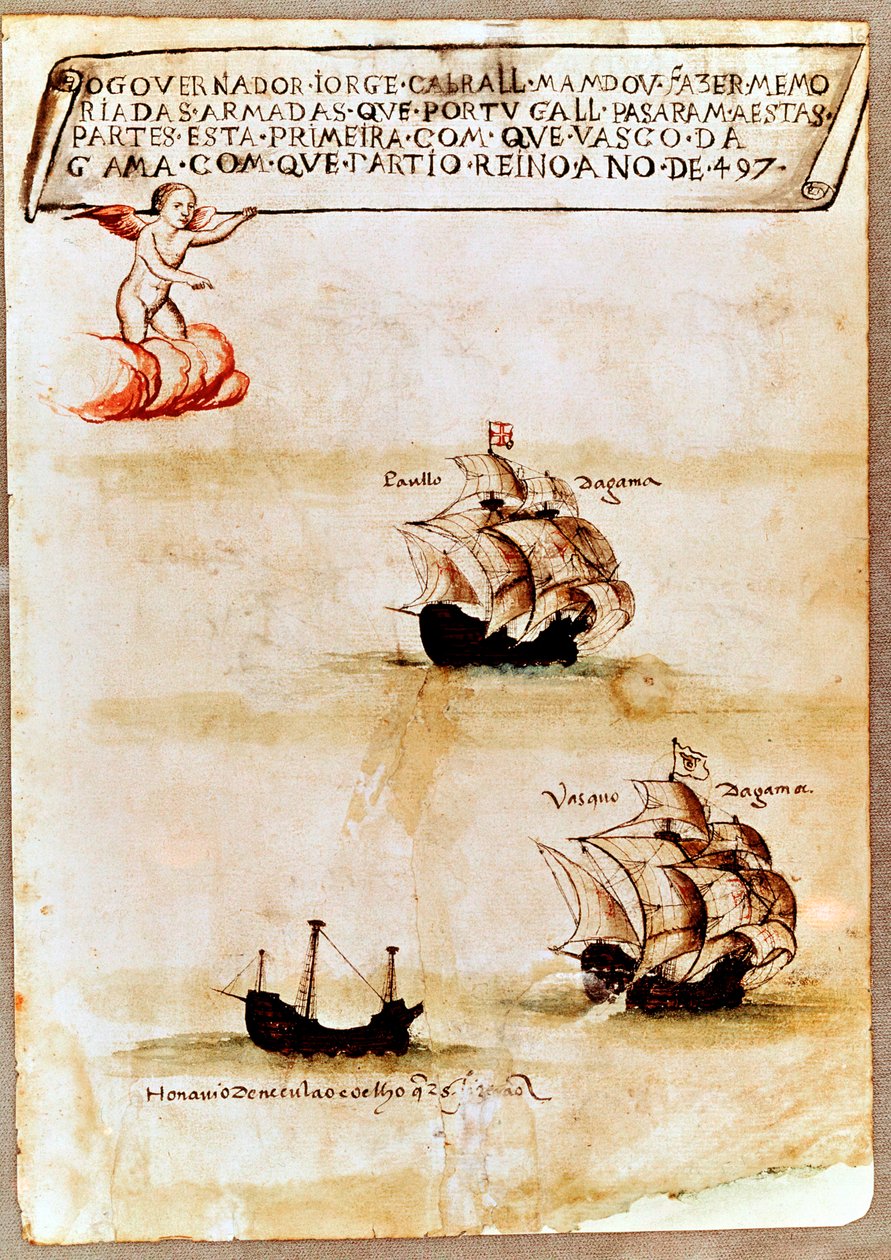 OGOVERNADOR·IORGE·CABRALL·MAMDOV·FAZER·MEMO
RIADAS·ARMADAS·QVE·PORTVGALL·PASARAM·AESTAS·
PARTES·ESTA·PRIMEIRA·COM·QVE·VASCO·DA
GAMA·COM·QVE·PARTIO·REINO·ANO·DE·497·
Paullo Dagama
Vasquo Dagama.
Honauio De neculao coelho q̃